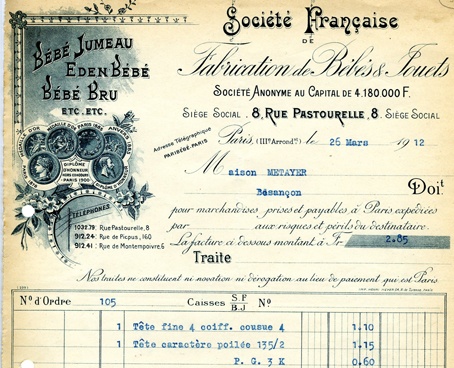 BÉBÉ JUMEAU
EDEN BÉBÉ
BÉBÉ BRU
ETC. ETC.
DIPLÔME
D'HONNEUR
HORS CONCOURS
PARIS 1900
TÉLÉPHONES
1032.79: Rue Pastourelle, 8
912.24: Rue de Picpus, 160
912.41: Rue de Montempoivre, 6
Société Française
DE
Fabrication de Bébés & Jouets
SOCIÉTÉ ANONYME AU CAPITAL DE 4.180000 F.
SIÈGE SOCIAL. 8, RUE PASTOURELLE, 8. SIÈGE SOCIAL
Adresse Télégraphique
PARIBÉBÉ-PARIS
Paris, (IIIe Arrondt) le 26 Mars 1912
Maison METAYER
Besançon
Doit
pour marchandises prises et payables à Paris expédiées
par aux risques et périls du destinataire.
La facture ci dessous montant à Fr 2.85
Traite
Nos traites ne constituent ni novation ni dérogation au lieu de paiement qui est Paris
No d'Ordre 105 Caisses S.F No
B.J
1 Tête fine 4 coiff. cousue 4 1.10
1 Tête caractère poilée 135/2 1.15
P. G. 3 K 0.60